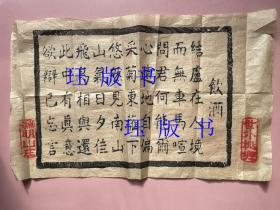 飲酒
結廬在人境
而無車馬喧
問君何能爾
心遠地自偏
采菊東籬下
悠然見南山
山氣日夕佳
飛鳥相與還
此中有真意
欲辯已忘言
珏版书
珏版书